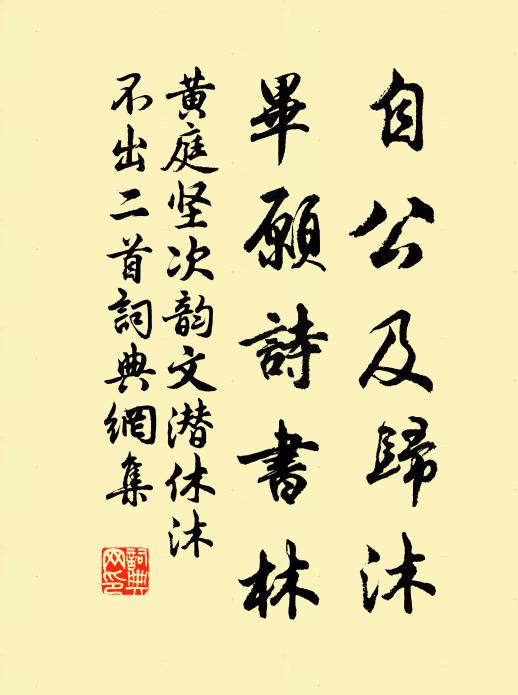 自公及歸沐
畢願詩書林
黄庭坚次韵文潜休沐
不出二首詞典網集
詞典
网印